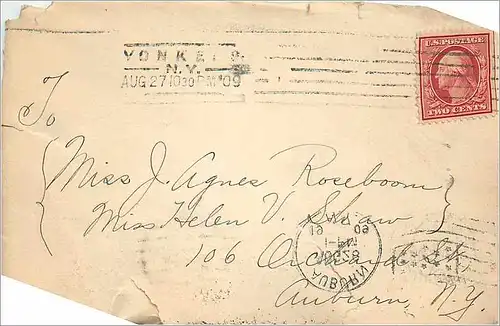 YONKERS
N.Y.
AUG 27 10 30 PM '09
U.S. POSTAGE
TWO CENTS
To
Miss J. Agnes Roseboom
Miss Helen V. Shaw
106 Orchard St,
Auburn, N.Y.
AUBURN
AUG 28
1909